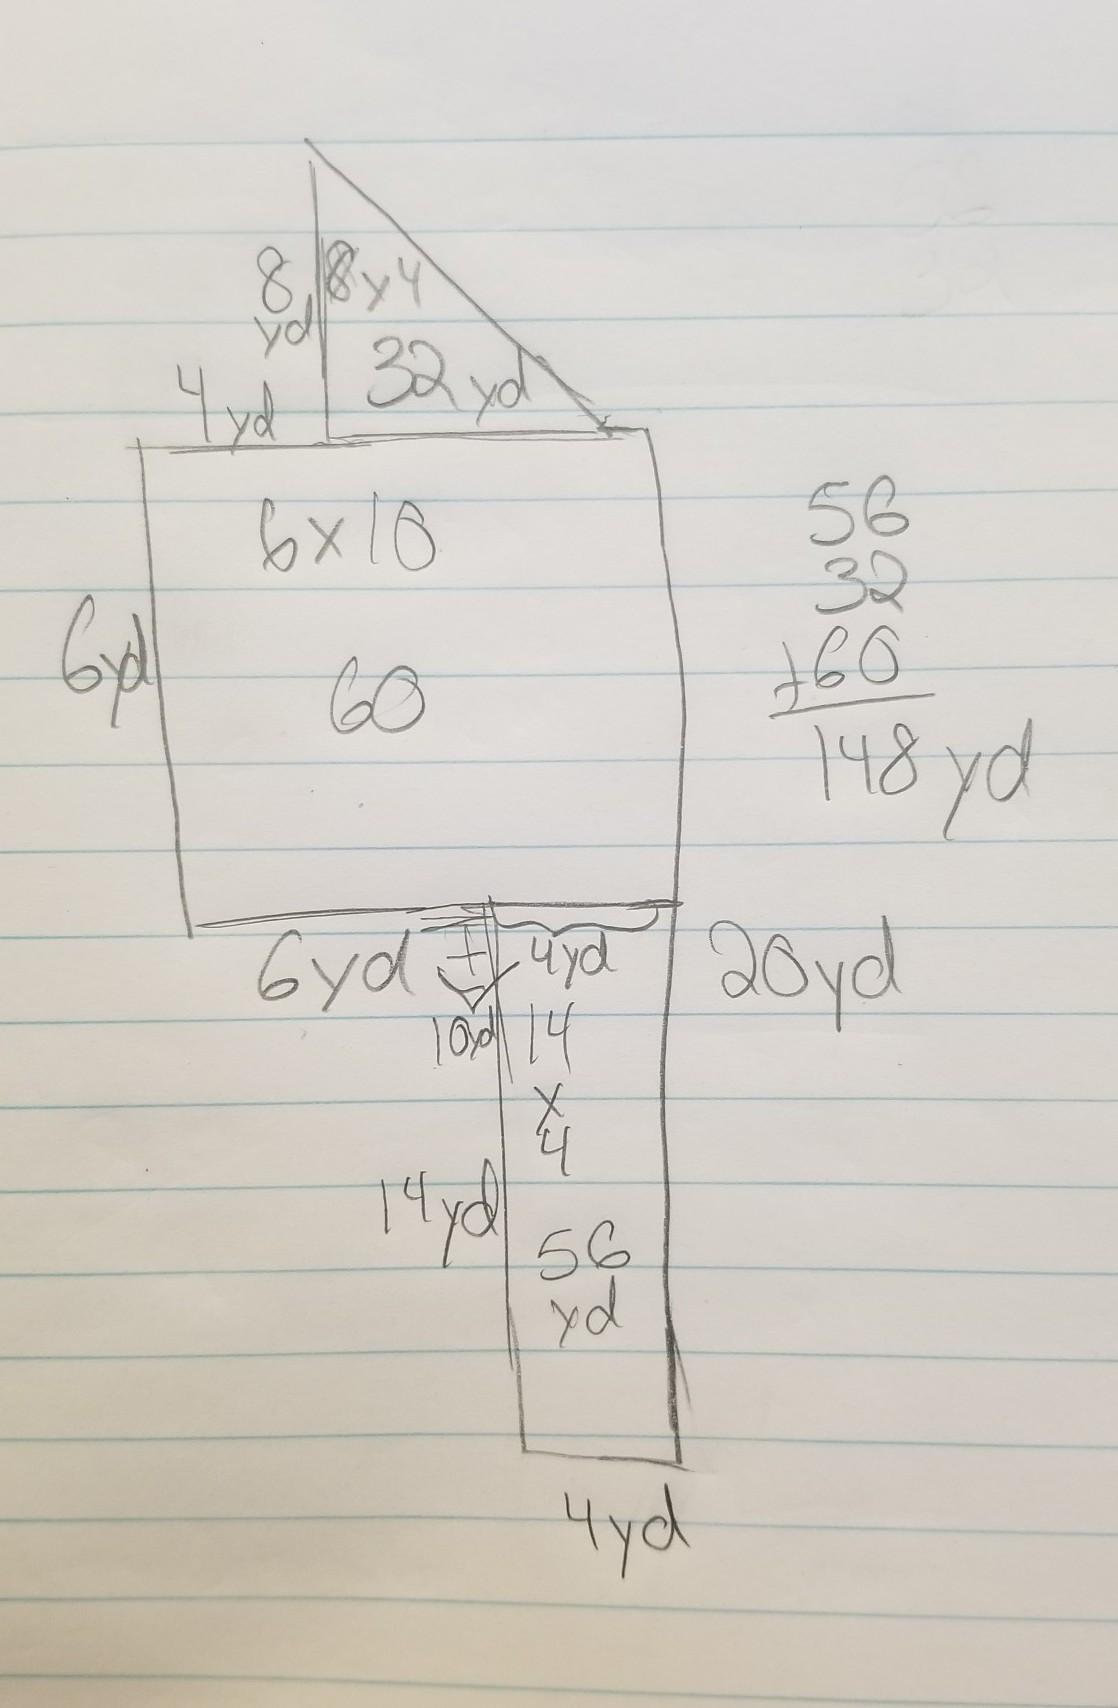 8 yd
8x4
32 yd
4 yd
6x10
60
6yd
56
32
+60
148 yd
6yd
+
4yd
20yd
10yd
14
x
4
14yd
56
yd
4yd